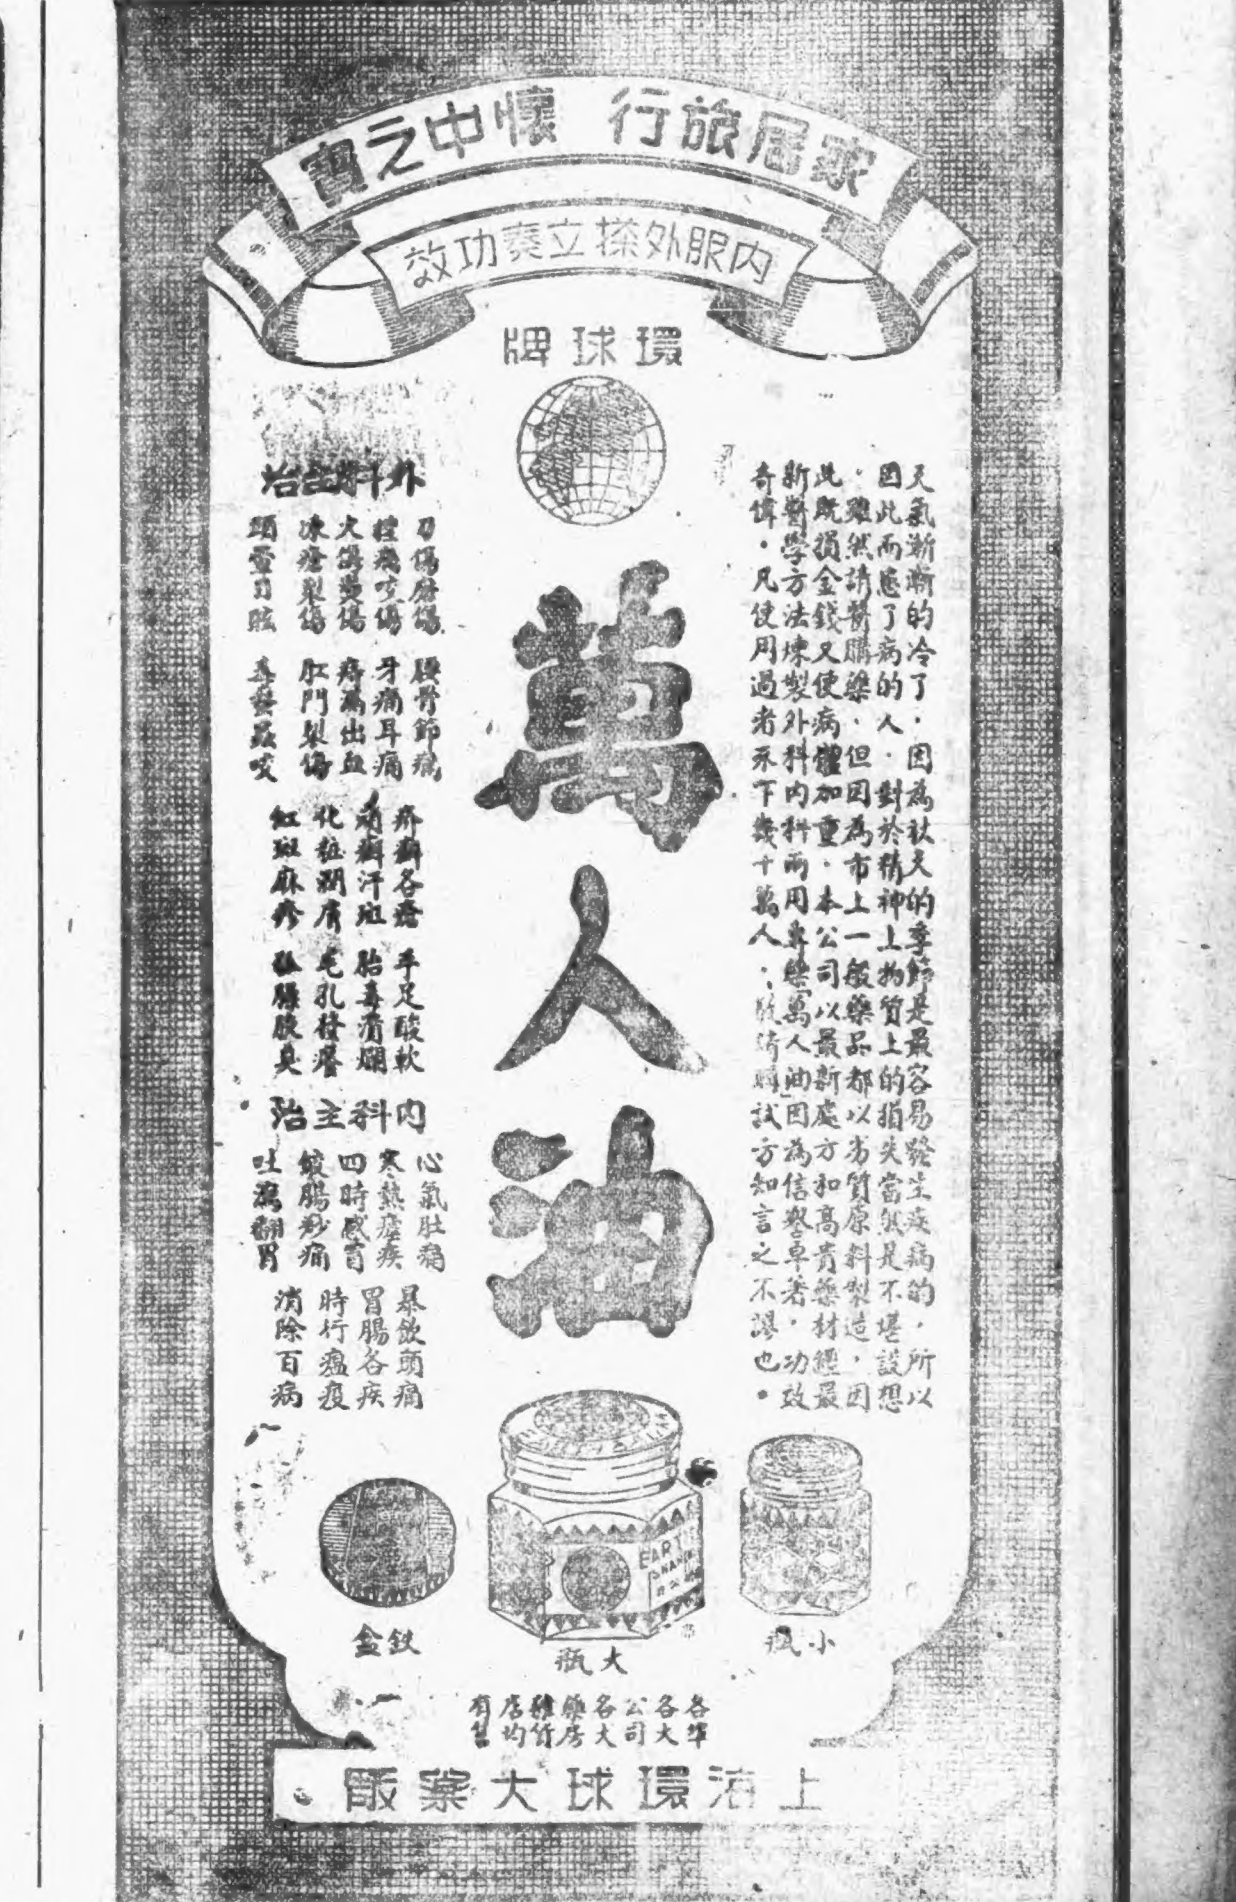 家居旅行 懷中之寶
內服外搽立奏功效
環球牌
天氣漸漸的冷了，因為秋天的季節是最容易發生疾病的，所以
因此而患了病的人，對於精神上物質上的損失當然是不堪設想
，雖然請醫購藥，但因為市上一般藥品都以劣質原料製造，因
此既損金錢又使病體加重。本公司以最新處方和高貴藥材經最
新醫學方法煉製外科內科兩用聖藥「萬人油」因為信譽卓著，功效
奇偉。凡使用過者不下幾十萬人；敬請購試方知言之不謬也。
萬人油
外科主治
刀傷磨傷 腰骨節痛 疥癬各瘡 手足酸軟
咬傷 牙痛耳痛 癬汗斑 胎毒濕爛
火傷燙傷 痔漏出血 化粧潤膚 毛孔發癢
凍瘡裂傷 肛門裂傷 紅斑麻疹 狐臊腋臭
頭暈目眩 毒蟲咬
內科主治
心氣肚痛 暴飲頭痛
寒熱瘧疾 胃腸各疾
四時感冒 時行瘟疫
絞腸痧痛 消除百病
吐瀉翻胃
小瓶
大瓶
鉄盒
各埠各大公司各大藥房雜貨店均有售
上海環球大藥廠